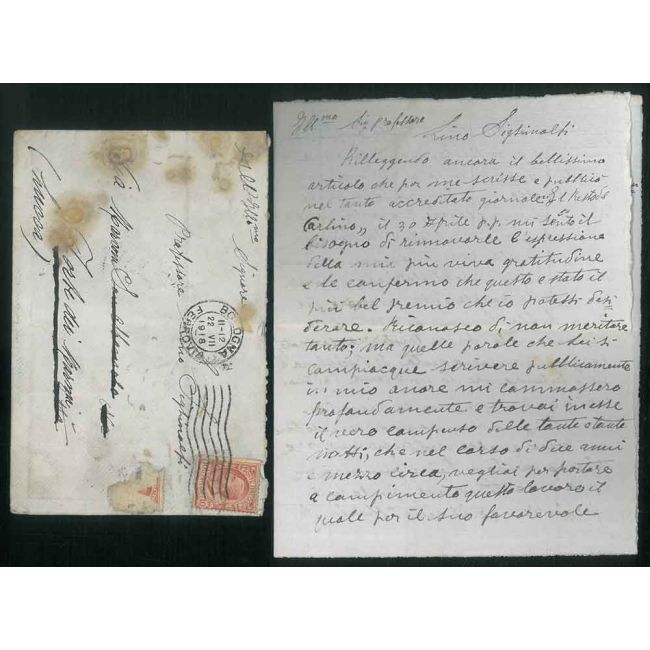 All'Illmo Signore
Professore Lino Sighinolfi
Via Manzoni
Forte dei Marmi
(Lucca)
BOLOGNA
FERROVIA
11-12
22 VII
1918
Illmo Sig professore
Lino Sighinolfi
Rilleggendo ancora il bellissimo
articolo che per me scrisse e pubblicò
nel tanto accreditato giornale: Il Resto d
Carlino,, il 30 Aprile p.p. mi sento il
bisogno di rinnovarle l'espressione
della mia più viva gratitudine
e le confermo che questo è stato il
più bel premio che io potessi desi
derare. Riconosco di non meritare
tanto; ma quelle parole che Lei si
compiacque scrivere pubblicamente
in mio onore mi commossero
profondamente e trovai in esse
il vero compenso delle tante e tante
notti, che nel corso di due anni
e mezzo circa, vegliai per portare
a compimento questo lavoro il
quale per il suo favorevole